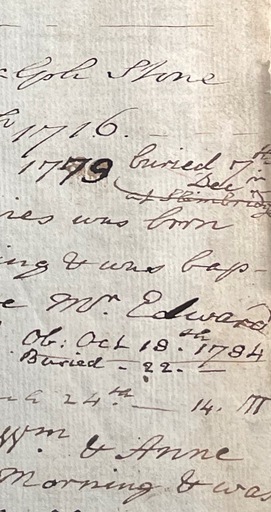 Ralph Stone
1716.
1779 buried 7th
Decm
at Slimbridge
ries was born
ing & was bap-
e Mr. Edward
Ob: Oct 18.th 1784
Buried - 22. -
24th — 14. M
Wm & Anne
Morning & was